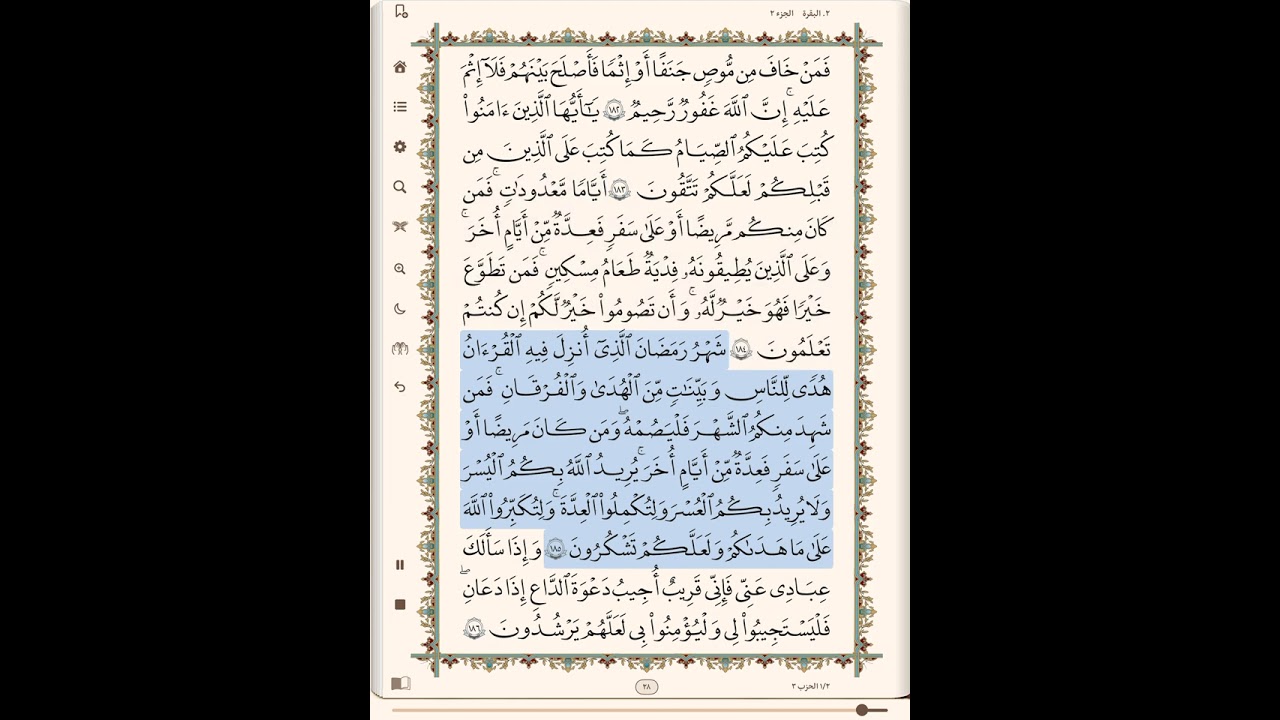 ٢. البقرة الجزء ٢
فَمَنْ خَافَ مِن مُّوصٍ جَنَفًا أَوْ إِثْمًا فَأَصْلَحَ بَيْنَهُمْ فَلَآ إِثْمَ
عَلَيْهِ ۚ إِنَّ ٱللَّهَ غَفُورٌ رَّحِيمٌ ١٨٢ يَـٰٓأَيُّهَا ٱلَّذِينَ ءَامَنُوا۟
كُتِبَ عَلَيْكُمُ ٱلصِّيَامُ كَمَا كُتِبَ عَلَى ٱلَّذِينَ مِن
قَبْلِكُمْ لَعَلَّكُمْ تَتَّقُونَ ١٨٣ أَيَّامًا مَّعْدُودَٰتٍ ۚ فَمَن
كَانَ مِنكُم مَّرِيضًا أَوْ عَلَىٰ سَفَرٍ فَعِدَّةٌ مِّنْ أَيَّامٍ أُخَرَ ۚ
وَعَلَى ٱلَّذِينَ يُطِيقُونَهُۥ فِدْيَةٌ طَعَامُ مِسْكِينٍ ۖ فَمَن تَطَوَّعَ
خَيْرًا فَهُوَ خَيْرٌ لَّهُۥ ۚ وَأَن تَصُومُوا۟ خَيْرٌ لَّكُمْ إِن كُنتُمْ
تَعْلَمُونَ ١٨٤ شَهْرُ رَمَضَانَ ٱلَّذِىٓ أُنزِلَ فِيهِ ٱلْقُرْءَانُ
هُدًى لِّلنَّاسِ وَبَيِّنَـٰتٍ مِّنَ ٱلْهُدَىٰ وَٱلْفُرْقَانِ ۚ فَمَن
شَهِدَ مِنكُمُ ٱلشَّهْرَ فَلْيَصُمْهُ ۖ وَمَن كَانَ مَرِيضًا أَوْ
عَلَىٰ سَفَرٍ فَعِدَّةٌ مِّنْ أَيَّامٍ أُخَرَ ۗ يُرِيدُ ٱللَّهُ بِكُمُ ٱلْيُسْرَ
وَلَا يُرِيدُ بِكُمُ ٱلْعُسْرَ وَلِتُكْمِلُوا۟ ٱلْعِدَّةَ وَلِتُكَبِّرُوا۟ ٱللَّهَ
عَلَىٰ مَا هَدَىٰكُمْ وَلَعَلَّكُمْ تَشْكُرُونَ ١٨٥ وَإِذَا سَأَلَكَ
عِبَادِى عَنِّى فَإِنِّى قَرِيبٌ ۖ أُجِيبُ دَعْوَةَ ٱلدَّاعِ إِذَا دَعَانِ ۖ
فَلْيَسْتَجِيبُوا۟ لِى وَلْيُؤْمِنُوا۟ بِى لَعَلَّهُمْ يَرْشُدُونَ ١٨٦
١/٢ الحزب ٣
٢٨